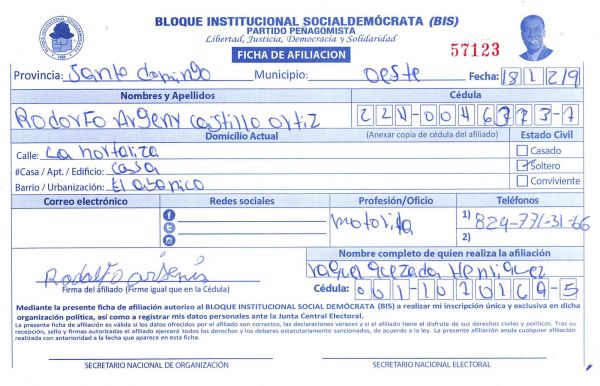 BLOQUE INSTITUCIONAL SOCIALDEMÓCRATA (BIS)
PARTIDO PEÑAGOMISTA
Libertad, Justicia, Democracia y Solidaridad
FICHA DE AFILIACION
57123
Provincia: Santo domingo Municipio: oeste Fecha: 18/12/9
Nombres y Apellidos Cédula
Rodorfo Argeny castillo ortiz 224-0046773-7
Domicilio Actual (Anexar copia de cédula del afiliado) Estado Civil
Calle: La hortaliza Casado
#Casa / Apt. / Edificio: casa Soltero
Barrio / Urbanización: El abanico Conviviente
Correo electrónico Redes sociales Profesión/Oficio Teléfonos
motorita 1) 829-771-31-66
2)
Nombre completo de quien realiza la afiliación
Rodolfo quezada Henriquez
Firma del afiliado (Firme igual que en la Cédula) Cédula: 001-1070169-5
Mediante la presente ficha de afiliación autorizo al BLOQUE INSTITUCIONAL SOCIAL DEMÓCRATA (BIS) a realizar mi inscripción única y exclusiva en dicha
organización política, así como a registrar mis datos personales ante la Junta Central Electoral.
La presente ficha de afiliación es válida si los datos ofrecidos por el afiliado son correctos, las declaraciones veraces y si el afiliado tiene el disfrute de sus derechos civiles y políticos. Tras su
recepción, sello y firmas autorizadas el afiliado ejercerá todos los derechos y los deberes estatutariamente sancionados, de acuerdo a la ley. La presente afiliación anula cualquier afiliación
realizada con anterioridad a la fecha que aparece en esta ficha.
SECRETARIO NACIONAL DE ORGANIZACIÓN SECRETARIO NACIONAL ELECTORAL